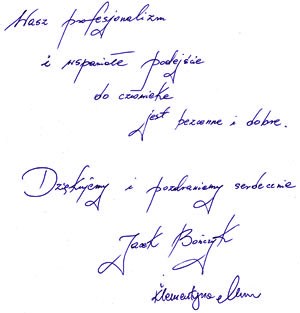 Wasz profesjonalizm
i wspaniałe podejście
do człowieka
jest bezcenne i dobre.
Dziękujemy i pozdrawiamy serdecznie
Jacek Bończyk
Klementyna